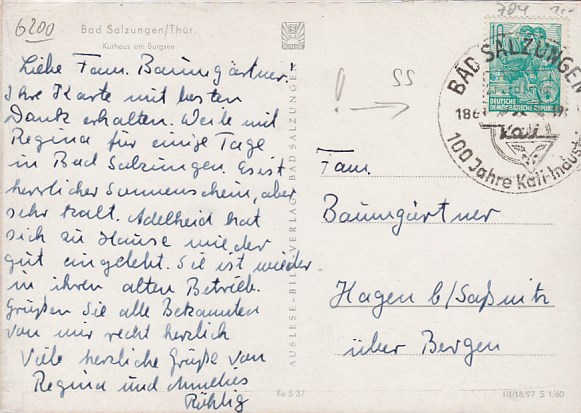 6200
Bad Salzungen/Thür.
Kurhaus am Burgsee
Liebe Fam. Baumgärtner,
Ihre Karte mit besten
Dank erhalten. Weile mit
Regina für einige Tage
in Bad Salzungen. Es ist
herrlicher Sonnenschein, aber
sehr kalt. Adelheid hat
sich zu Hause wieder
gut eingelebt. Sie ist wieder
in ihren alten Betrieb.
Grüßen Sie alle Bekannten
von mir recht herzlich
Viele herzliche Grüße von
Regina und Annelies
Röhlig
AUSLESE-BILD-VERLAG, BAD SALZUNGEN
Fo S 37
704
10
DEUTSCHE
DEMOKRATISCHE REPUBLIK
BAD SALZUNGEN
Kali
100 Jahre Kali-Indust
SS
Fam.
Baumgärtner
Hagen b/Saßnitz
über Bergen
III/18/97 S 1/60